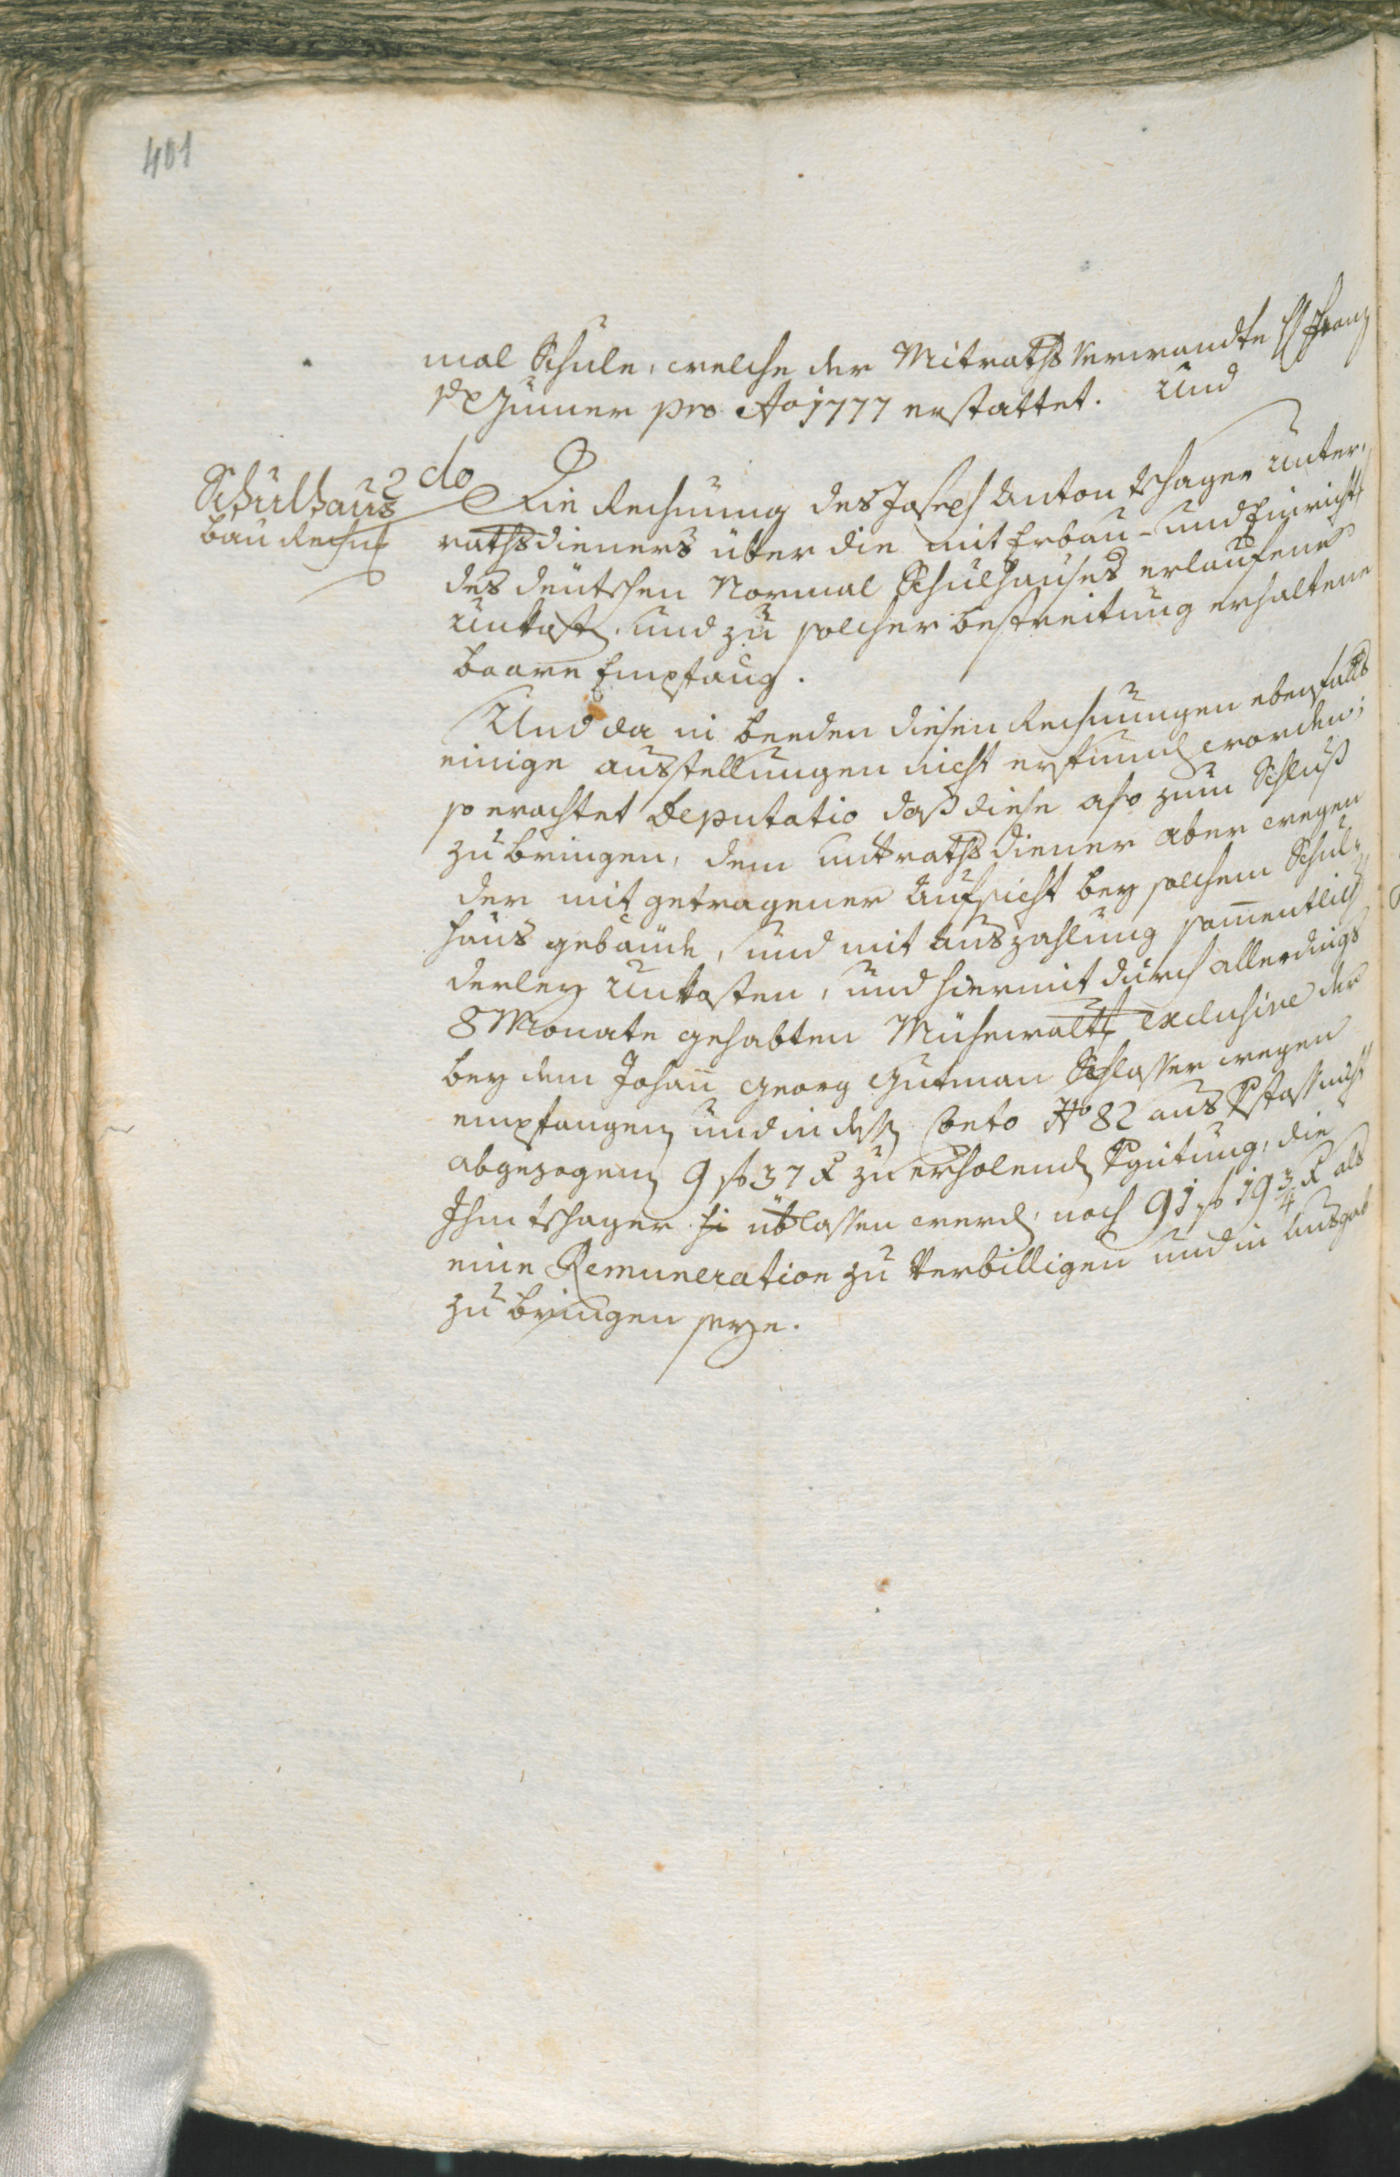 401
mal Schule, welche der Mitraths Verwandte H Franz
Gumer pro Ao 1777 erstattet. Und
Schulhaus
bau Rechng
2do Die Rechnung des Joseph Anton Tschager Unter-
rathsdieners über die mit Erbau- und Einricht
des deutschen Normal Schulhauses erlaufene
Unkosten. und zu solcher bestreitung erhaltene
baare Empfang.
Und da in beeden diesen Rechnungen ebenfalls
einige ausstellungen nicht erfunden worden;
so erachtet Deputatio daß diese also zum Schluß
zu bringen, dem untrathsdiener aber wegen
der mit getragener Aufsicht bey solchem Schul-
haus gebäude, und mit Auszahlung samentlich
derley Unkosten, und hiermit durch allerdings
8 Monate gehabten Mühewaltg exclusive der
bey dem Johann Georg Gutman Schlosser wegen
empfangen und in dessen Conto No 82 aus nicht
abgezogen 9 f 37 x zu erholenden Vergütung, die
Ihm Tschager hi überlassen werde, noch 91 f 19 3/4 x als
eine Remuneration zu Verbilligen und in Ausgab
zu bringen seye.